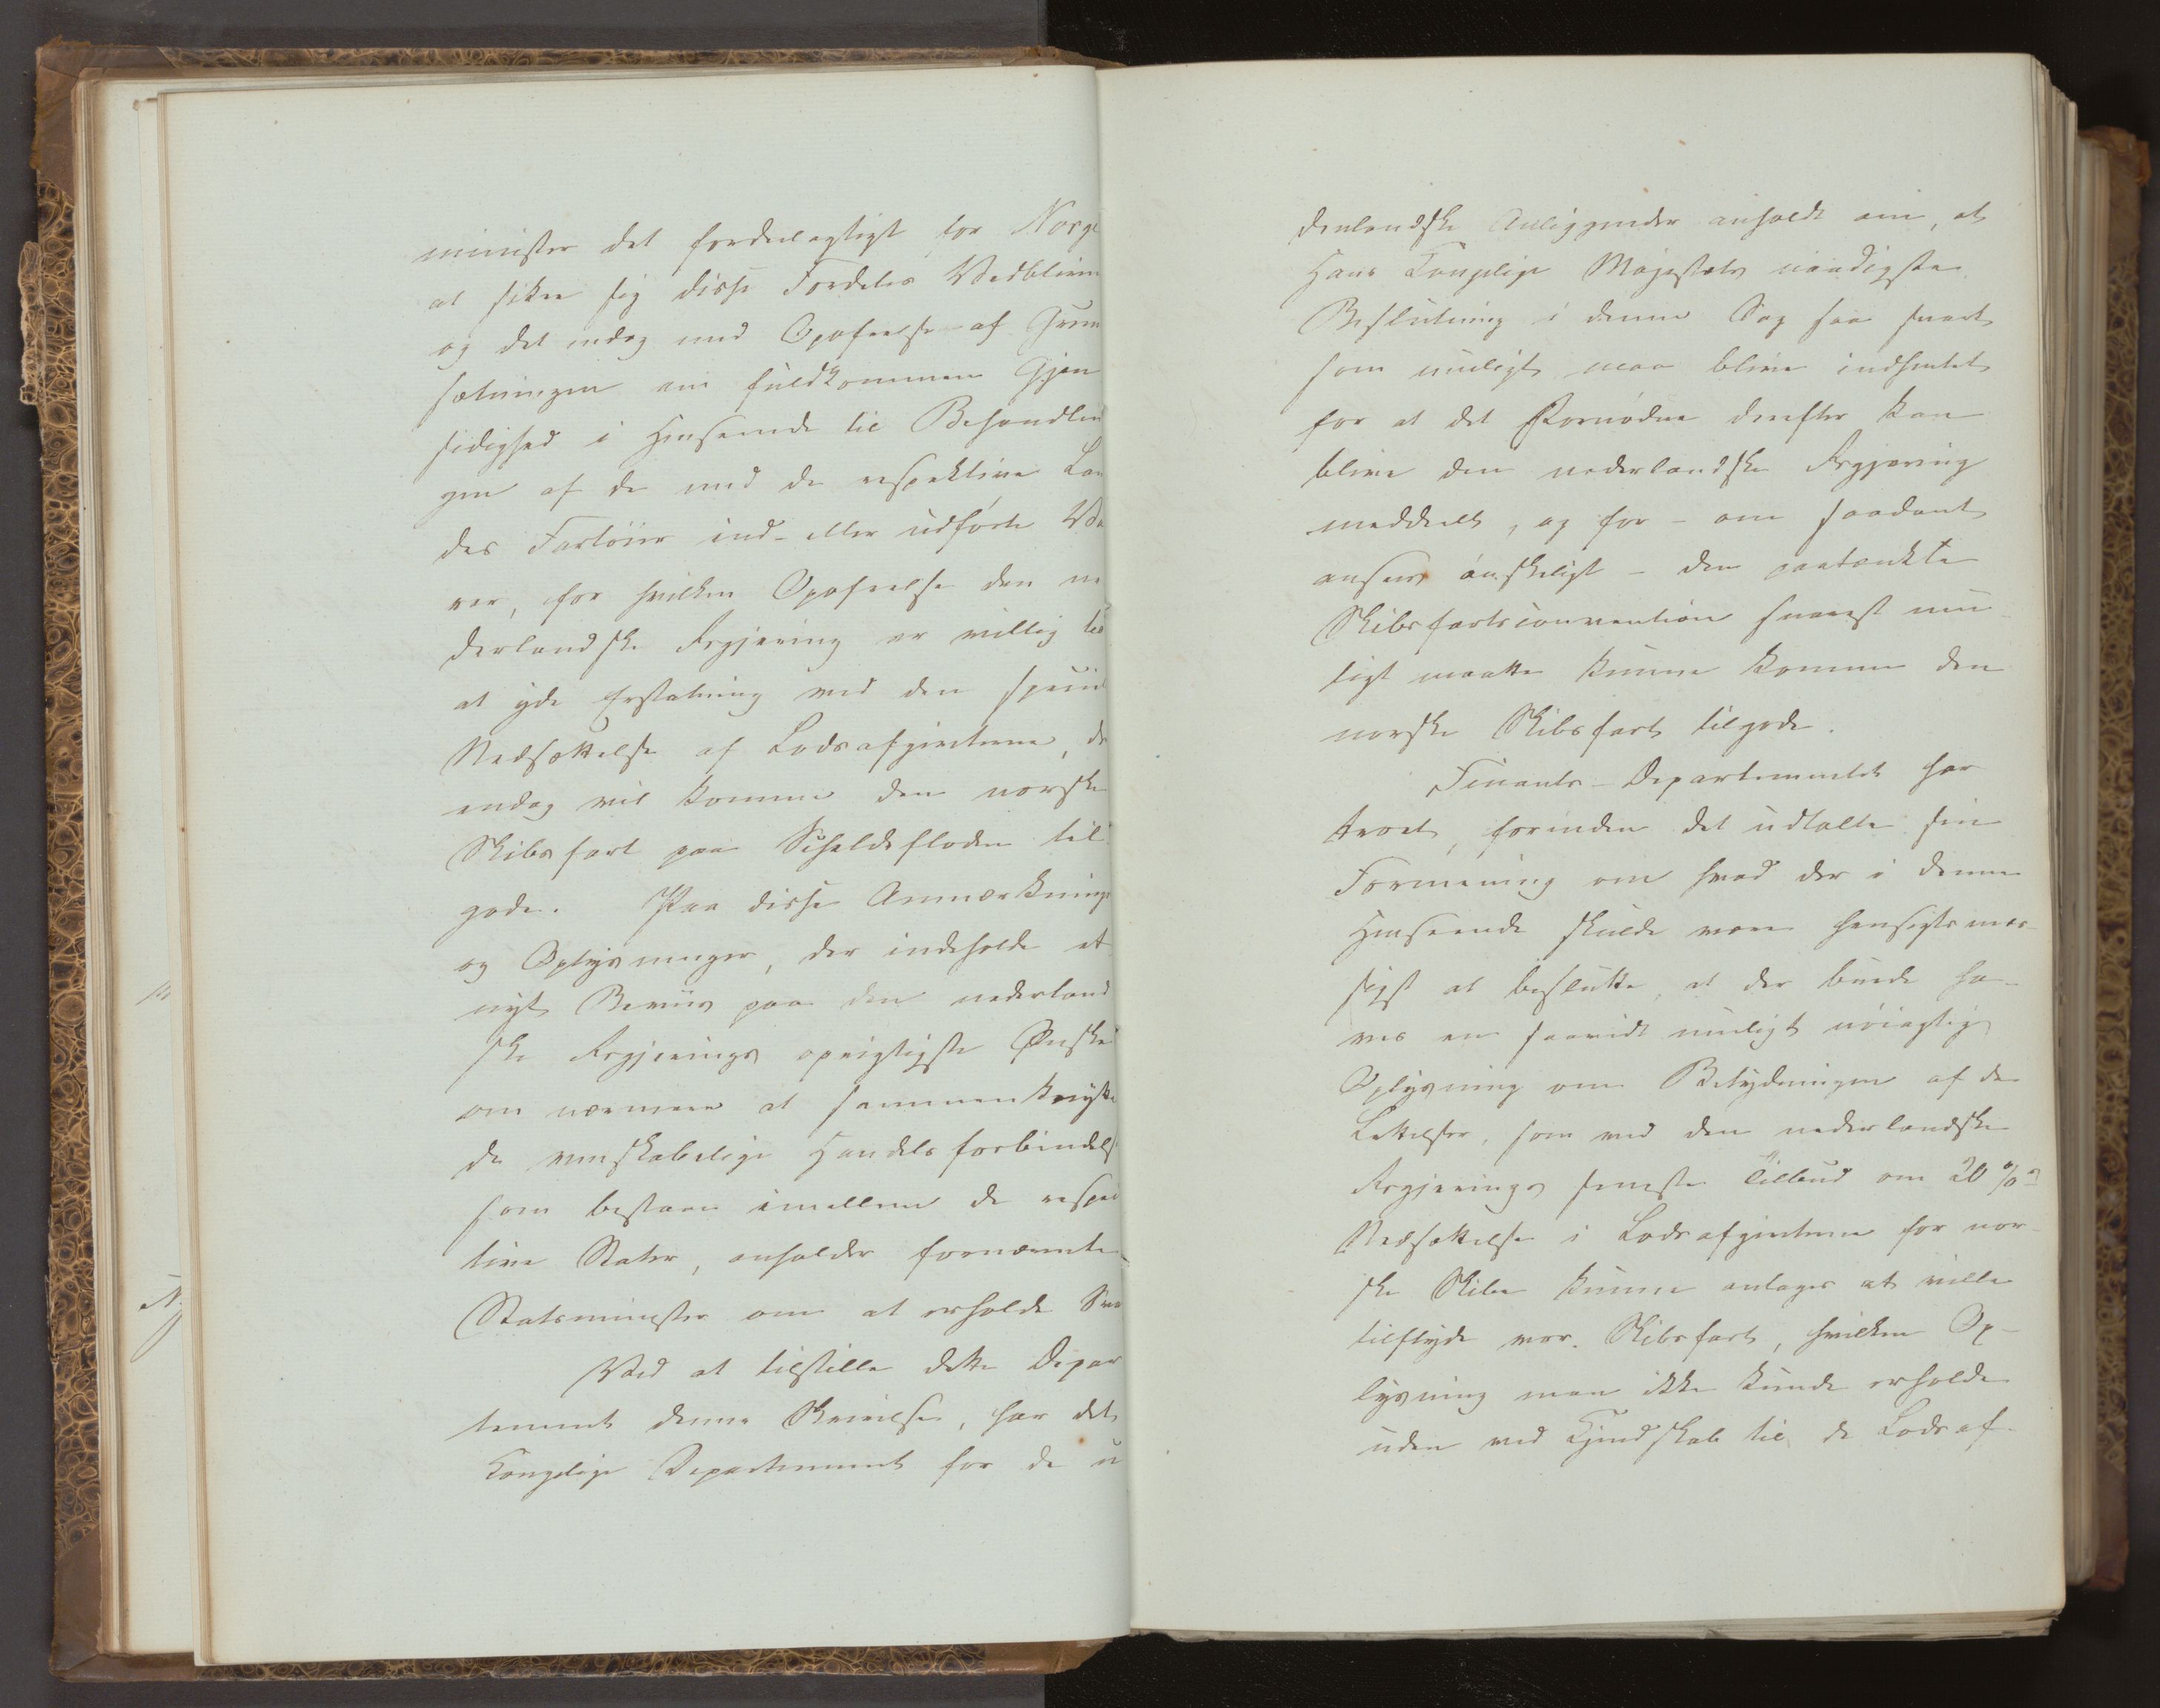 minister det fordeelagtigt for Norge
at sikre sig disse Fordeles Vedbliven
og det endog med Opofrelse af Grund
sætningen om fuldkommen Gjen
sidighed i Henseende til Behandlin
gen af de med de respektive Lan
des Fartöier ind- eller udförte Va
rer, for hvilken Opofrelse den ne
derlandske Regjering er villig til
at yde Erstatning ved den
Nedsættelse af Lodsafgivterne, der
endog vil komme den norske
Skibsfart paa Scheldefloden til
gode. Paa disse Anmærkninge
og Oplysninger, der indeholde et
nyt Beviis paa den nederland
ske Regjerings oprigtigste Ønske
om nærmere at sammenknytte
de venskabelige Handelsforbindelse
som bestaae imellem de respec
tive Stater, anholder fornævnte
Statsminister om at erholde Sva
Ved at tilstille dette Depar
tement denne Skrivelse, har det
Kongelige Departement for de u
denlandske Anliggender anholdt om, at
Hans Kongelige Majestæts naadigste
Beslutning i denne Sag saa snart
som muligt maa blive indhentet
for at det Fornødne derefter kan
blive den nederlandske Regjering
meddeelt, og for – om saadant
ansees ønskeligt – den paatænkte
Skibsfartsconvention snarest mu-
ligt maatte kunne komme den
norske Skibsfart tilgode.
Finants-Departementet har
troet, forinden det udtalte sin
Formening om hvad der i denne
Henseende skulde være hensigtsmæs-
sigst at beslutte, at der burde ha-
ves en saavidt muligt nøiagtig
Oplysning om Betydningen af de
Lettelser, som ved den nederlandske
Regjerings seneste Tilbud om 20 %
Nedsættelse i Lodsafgivterne for nor-
ske Skibe kunne antages at ville
tilflyde vor Skibsfart, hvilken Op-
lysning man ikke kunde erholde
uden ved Kjendskab til de Lodsaf-